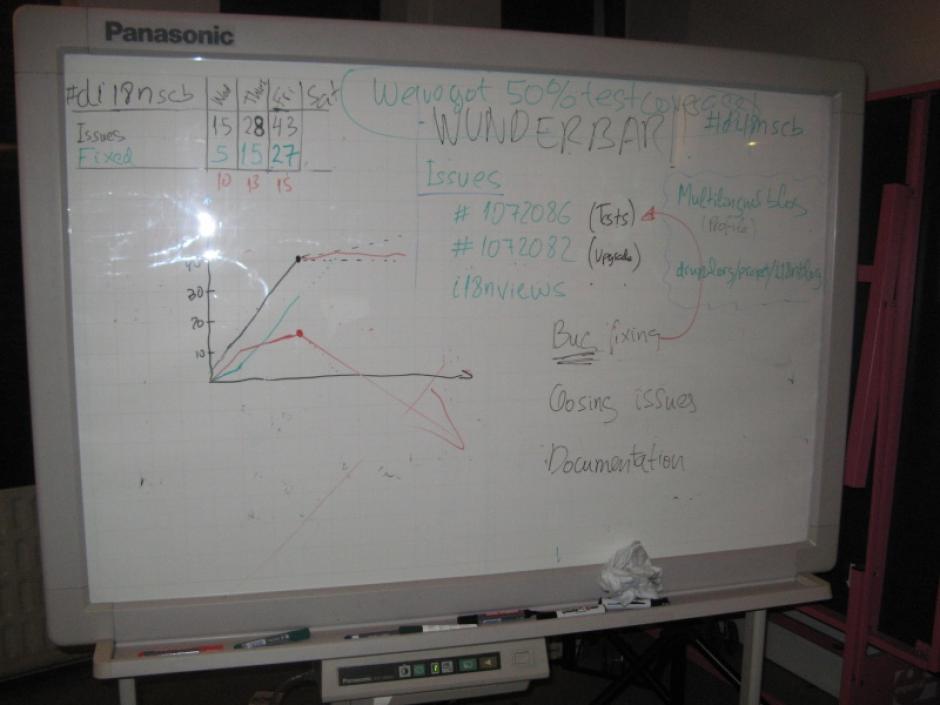 Panasonic
#di18nscb Wed Thur Fri Sat
Issues 15 28 43
Fixed 5 15 27
10 13 15
We've got 50% test coverage!
WUNDERBAR
#di18nscb
Issues
# 1072086 (Tests)
# 1072082 (Upgrade)
i18nviews
Multilingual blog
(Profile)
drupal.org/project/i18nblog
40
30
20
10
Bug fixing
Closing issues
Documentation
Panasonic